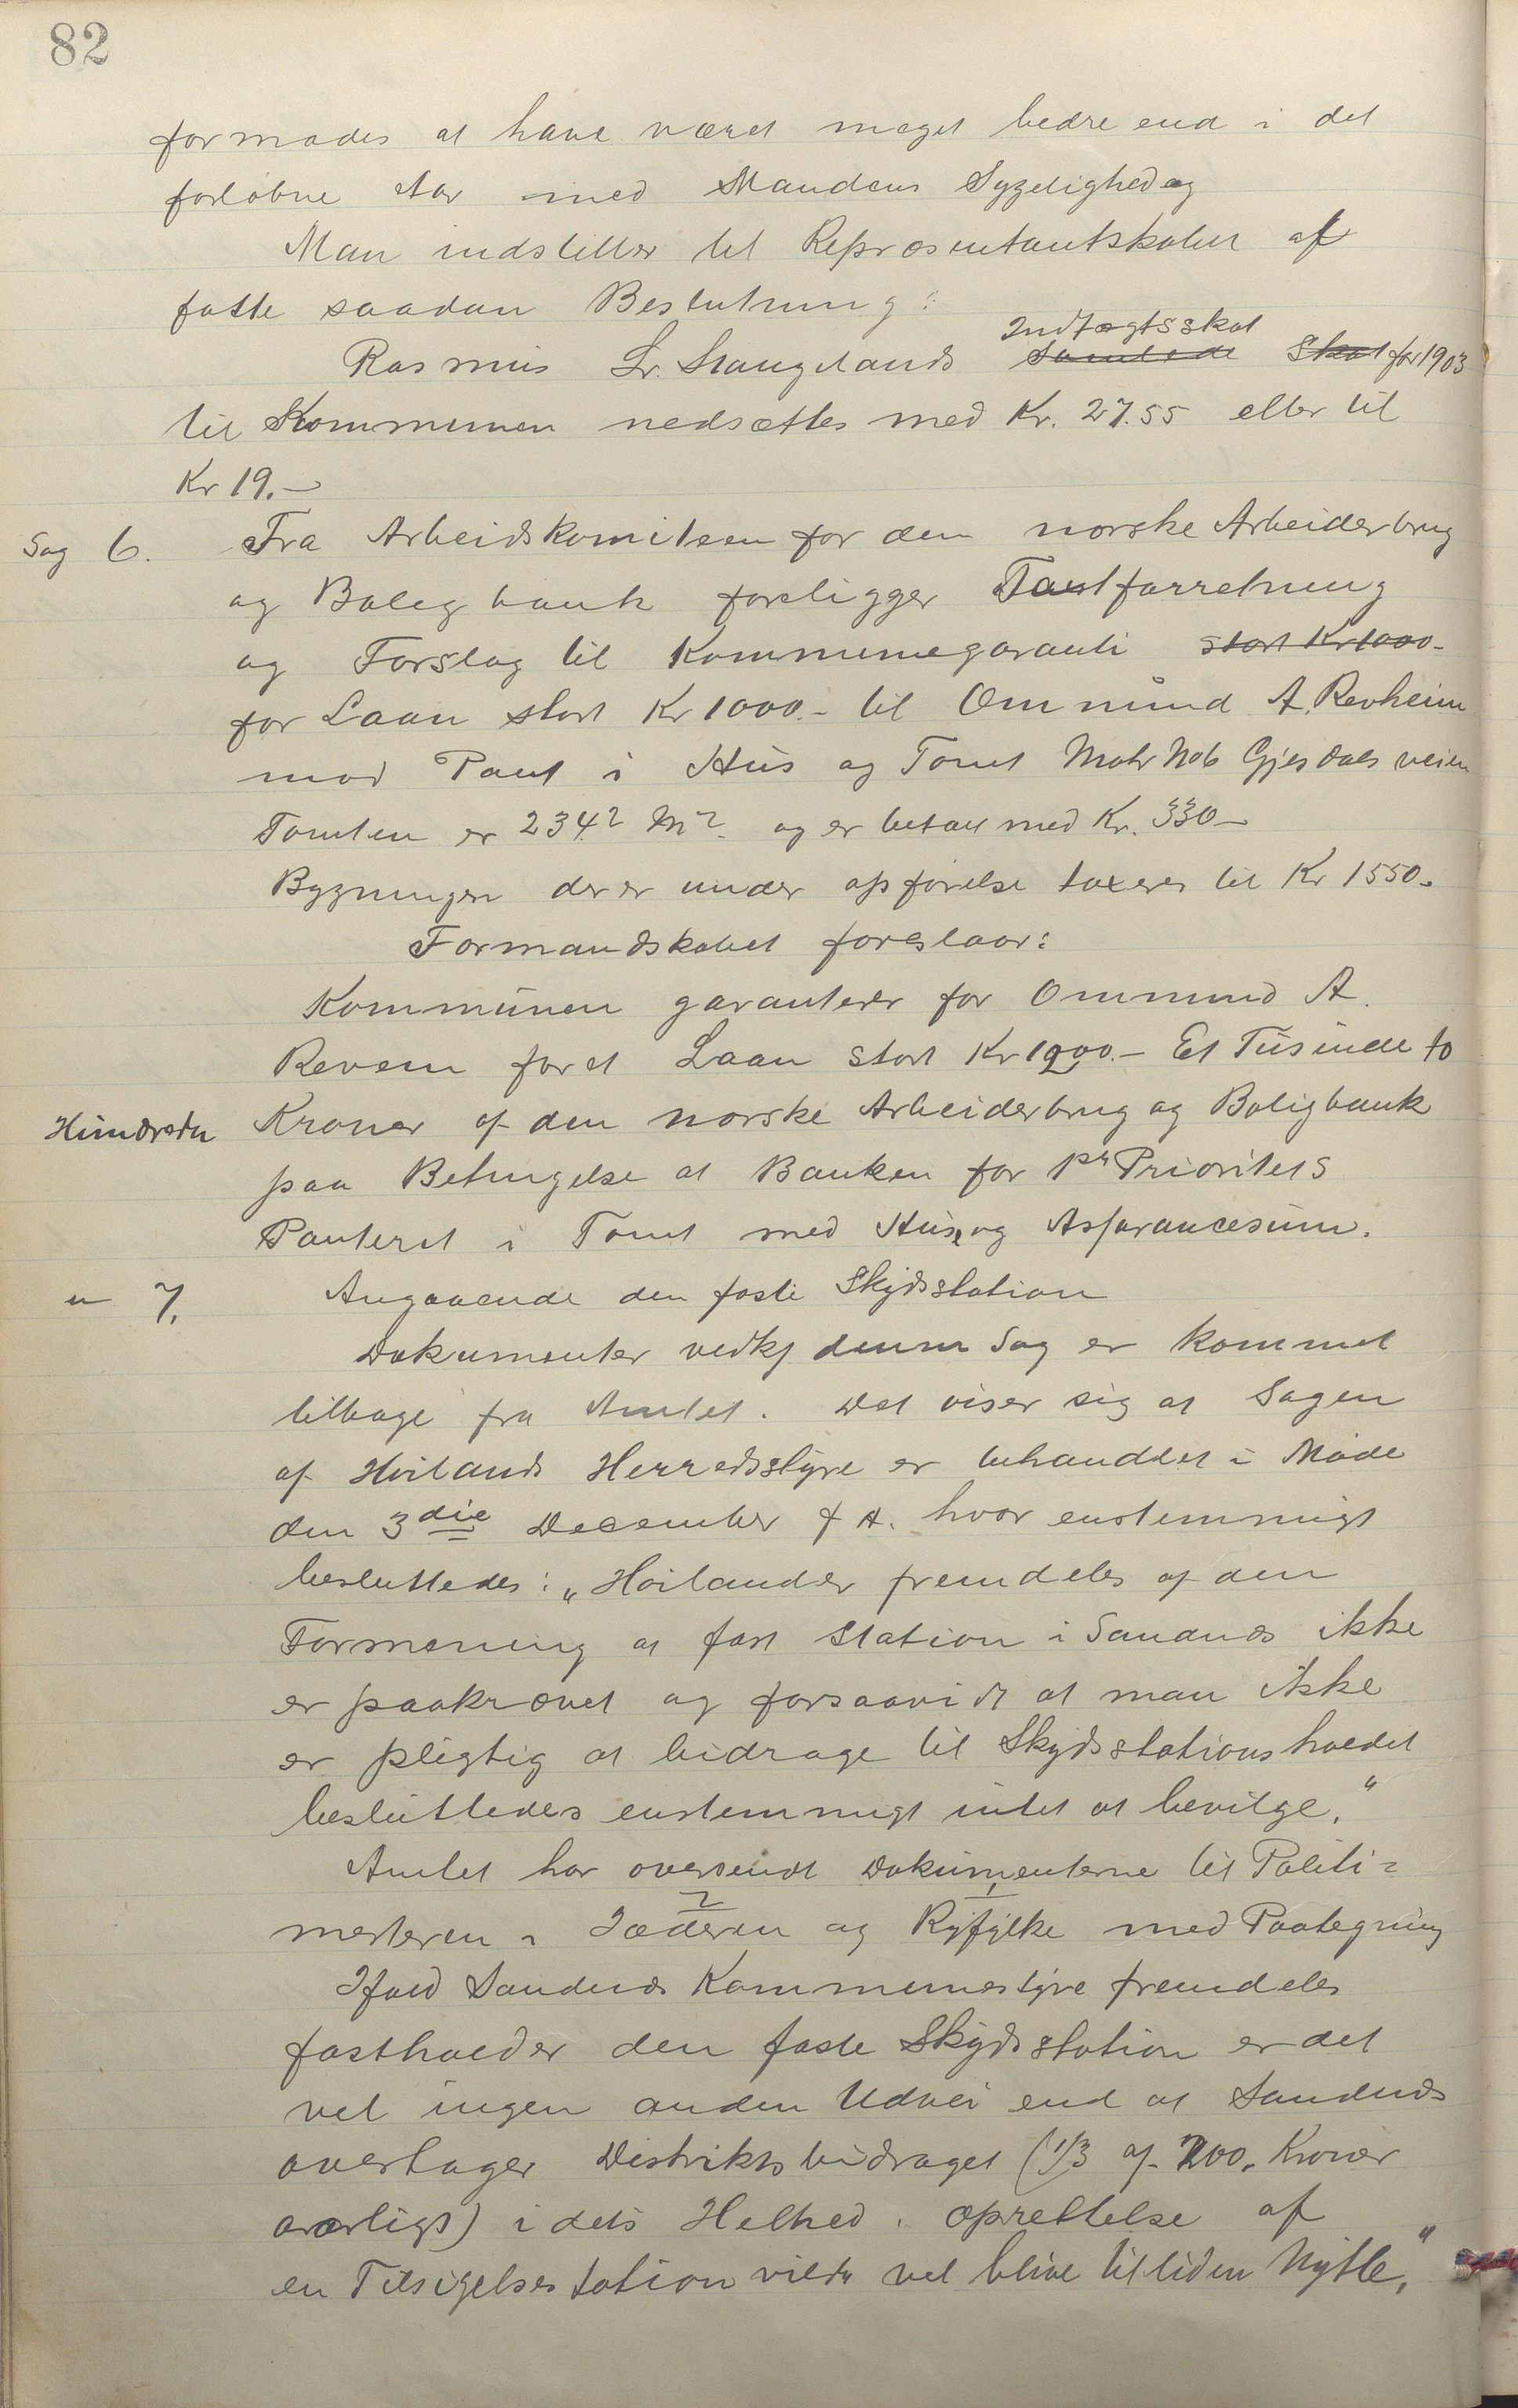 82
formodes at have været meget bedre end i det
forløbne Aar med Mandens Sygelighed og
Man indstiller til Repræsentantskabet at
fatte saadan Beslutning:
Indtægtsskat
Rasmus Sr. Stangelands Samlede Skat for 1903
til Kommunen nedsættes med Kr. 27.55 eller til
Kr 19.-
Sag 6. Fra Arbeidskomiteen for den norske Arbeiderbrug
og Boligbank foreligger Taxtforretning
og Forslag til Kommunegaranti stort Kr 1000-
for Laan stort Kr 1000.- til Ommund A. Revheim
mod Pant i Hus og Tomt Matr No 6 Gjesdalsveien
Tomten er 234² M². og er betalt med Kr. 330-
Bygningen der er under opførelse taxeres til Kr 1550.
Formandskabet foreslaar:
Kommunen garanterer for Ommund A.
Revem for et Laan stort Kr 1200.- Et Tusinde to
Hundrede Kroner af den norske Arbeiderbrug og Boligbank
paa Betingelse at Banken for 1ste Prioritets
Panteret i Tomt med Huse og Assurancesum.
" 7. Angaaende den faste Skydsstation
Dokumenter vedkj denne Sag er kommet
tilbage fra Amtet. Det viser sig at Sagen
af Høilands Herredsstyre er behandlet i Møde
den 3die December f A. hvor enstemmigt
besluttedes: „Høiland er fremdeles af den
Formening at fast Station i Sandnes ikke
er paakrævet og forsaavidt at man ikke
er pligtig at bidrage til Skydsstationsholdet
besluttedes enstemmigt intet at bevilge."
Amtet har oversendt Dokumenterne til Politi=
2 1
mesteren i Jæderen og Ryfylke med Paategning
Ifald Sandnes Kommunestyre fremdeles
fastholder den faste Skydsstation er det
vel ingen anden Udvei end at Sandnes
overtager Distriktsbidraget (1/3 af 200. Kroner
aarligt) i dets Helhed. Oprettelse af
en Tilsigelsesstation vilde vel blive til liden Nytte."